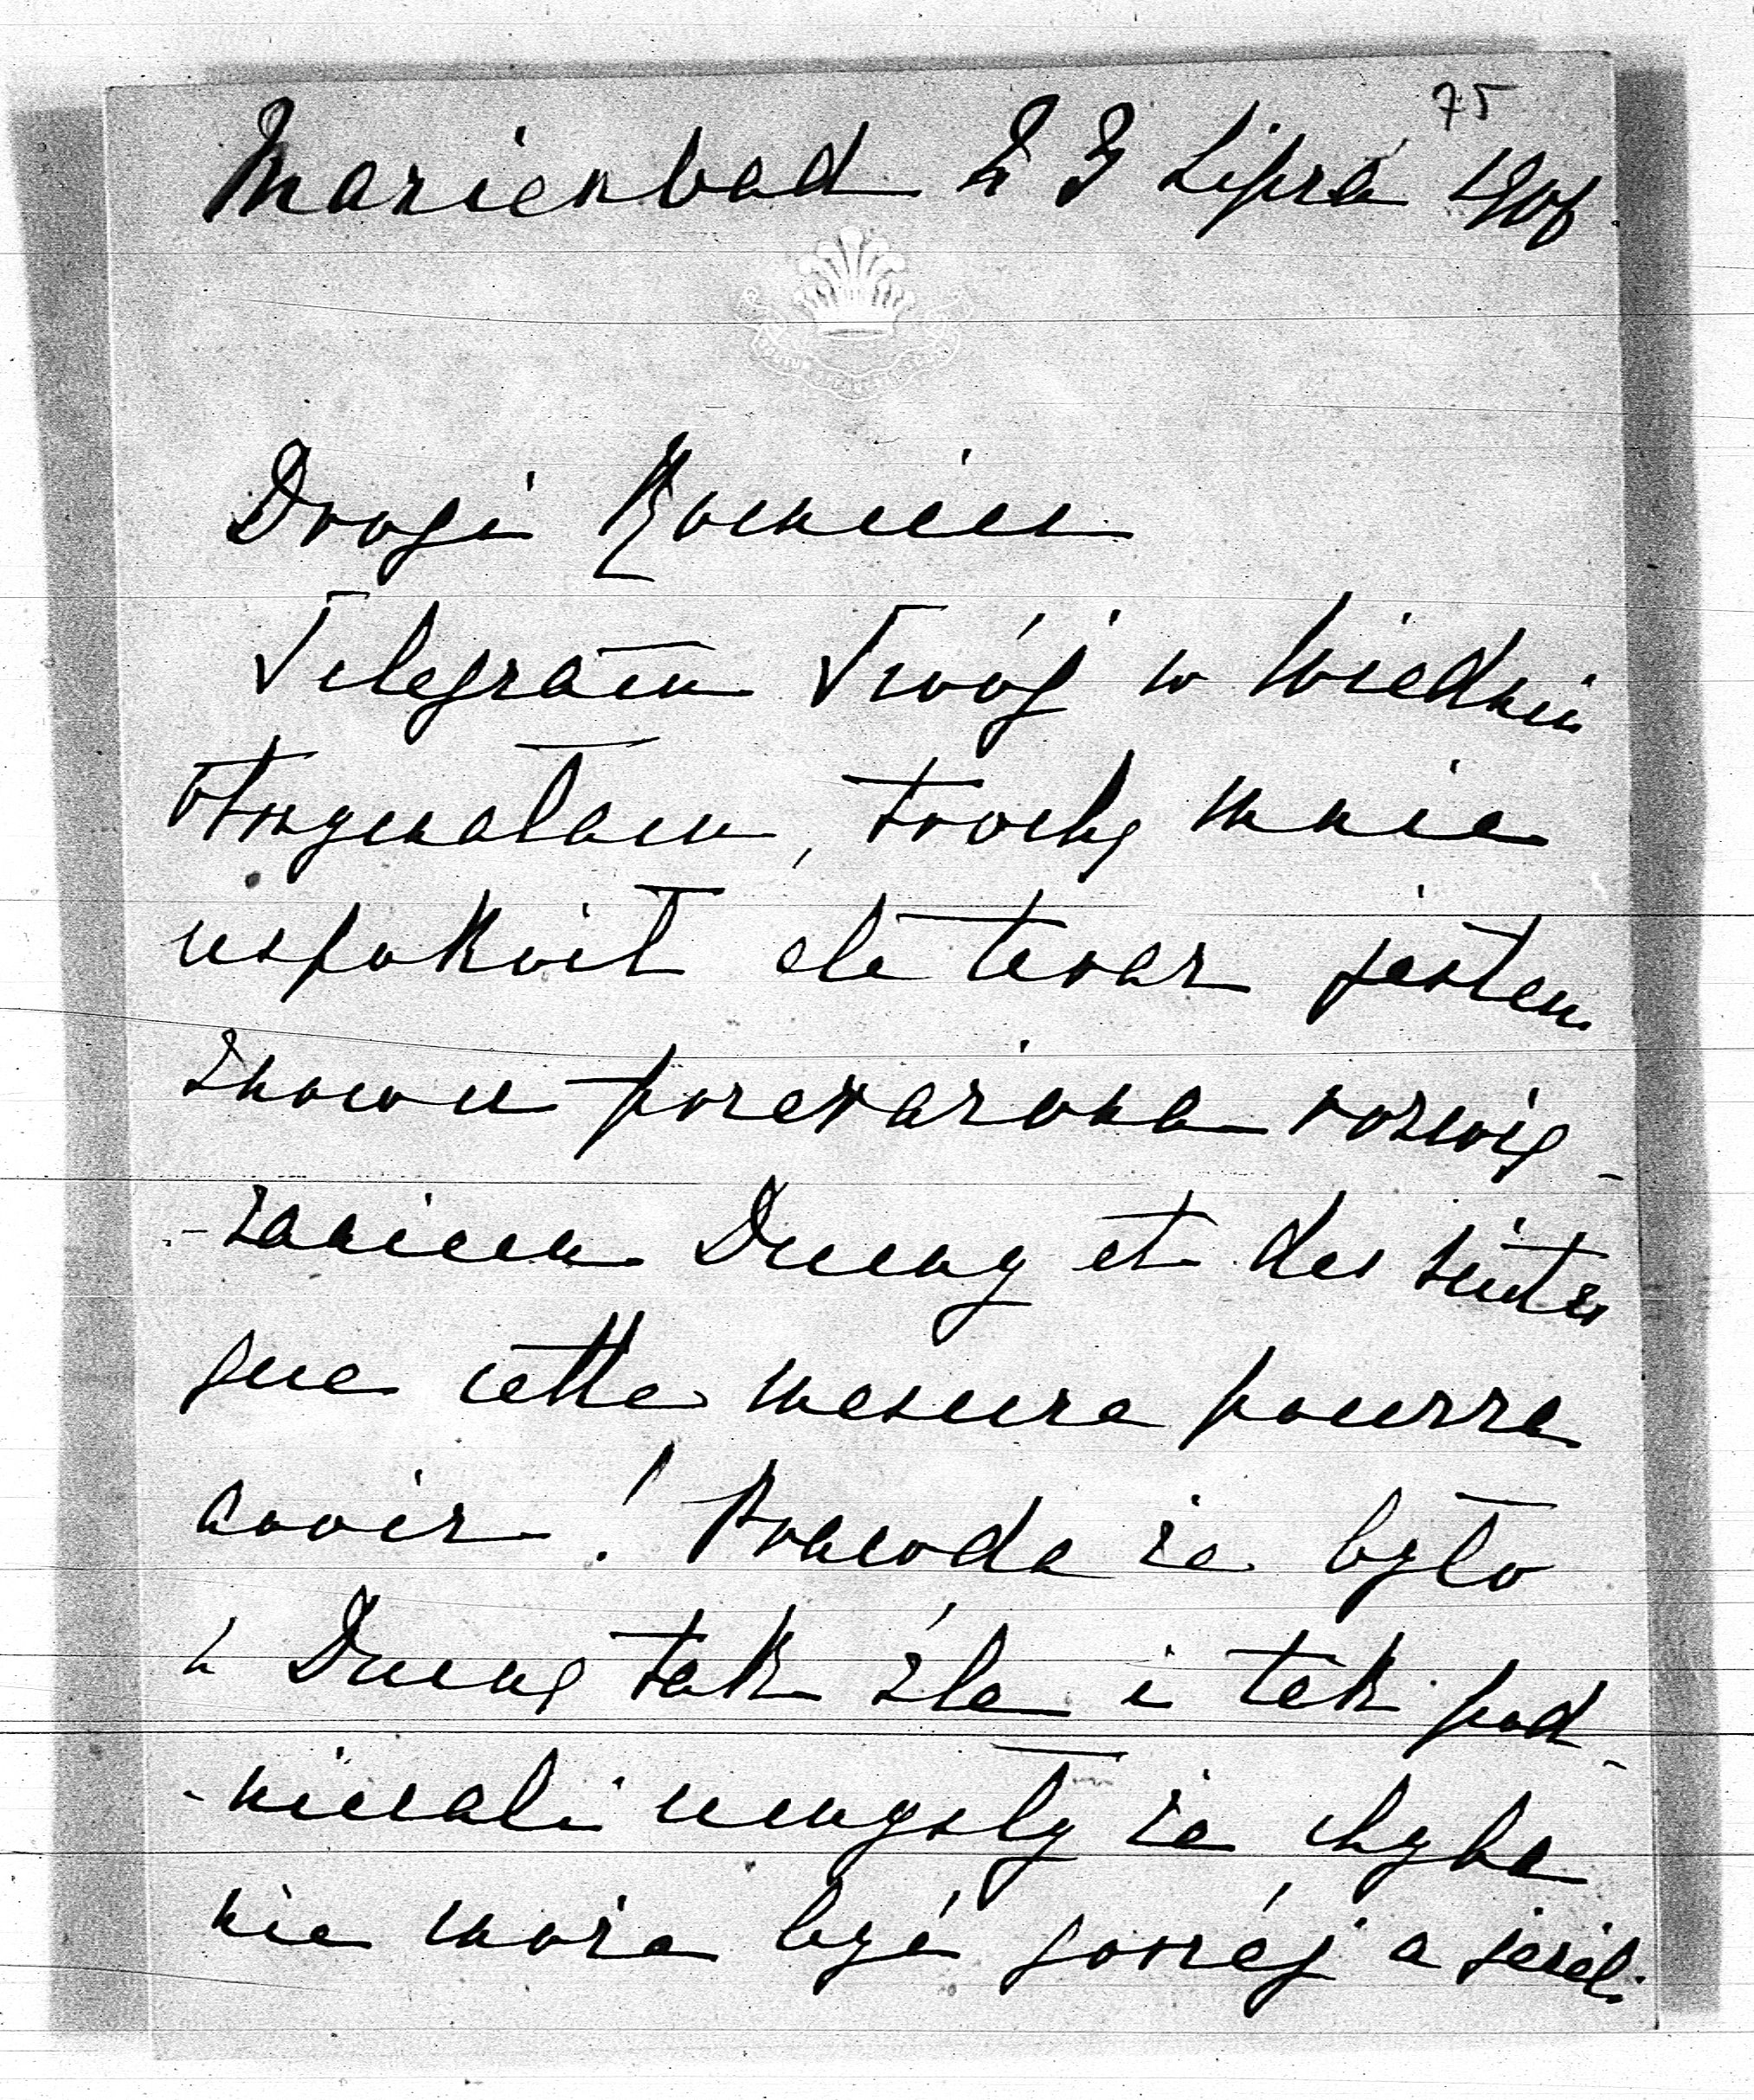 75
Marienbad 23 Lipca 1906
Drogi
Telegram Twój w Wiedniu
otrzymałam, trochę mnie
uspokoił ale teraz jestem
znowu przerażona rozwią-
-zaniem Dumy et des suites
que cette mesure pourra
avoir! Prawda że było
w Dumę tak źle i tak pod-
-niecali umysły że chyba
nie może być gorzéj a jeżeli